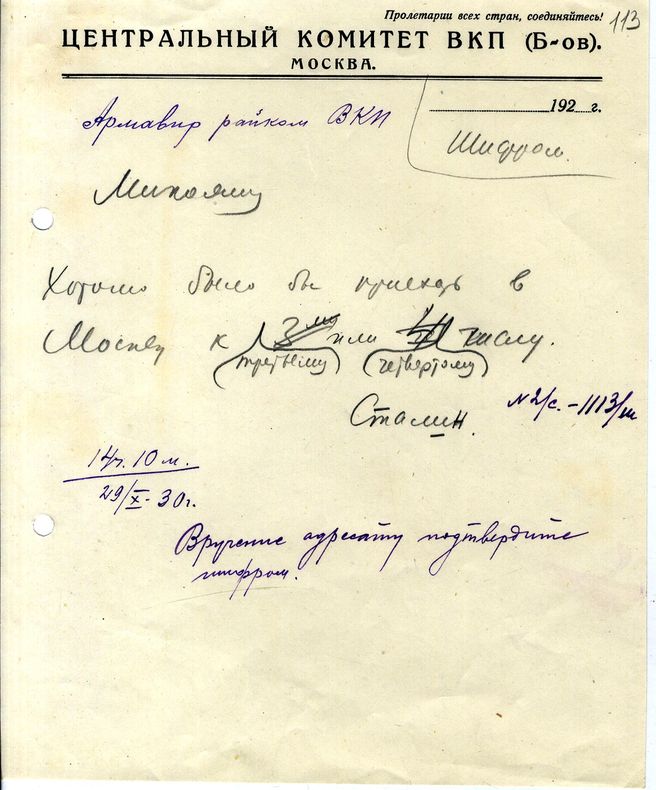 Пролетарии всех стран, соединяйтесь!
113
ЦЕНТРАЛЬНЫЙ КОМИТЕТ ВКП (Б-ов).
МОСКВА.
192 г.
Армавир райком ВКП
Шифром.
Микояну
Хорошо было бы приехать в
Москву к 3му или 4 числу.
(третьему) (четвертому)
Сталин.
N2/с. - 1113/ш
14ч. 10 м.
29/X - 30г.
Вручение адресату подтвердите
шифром.